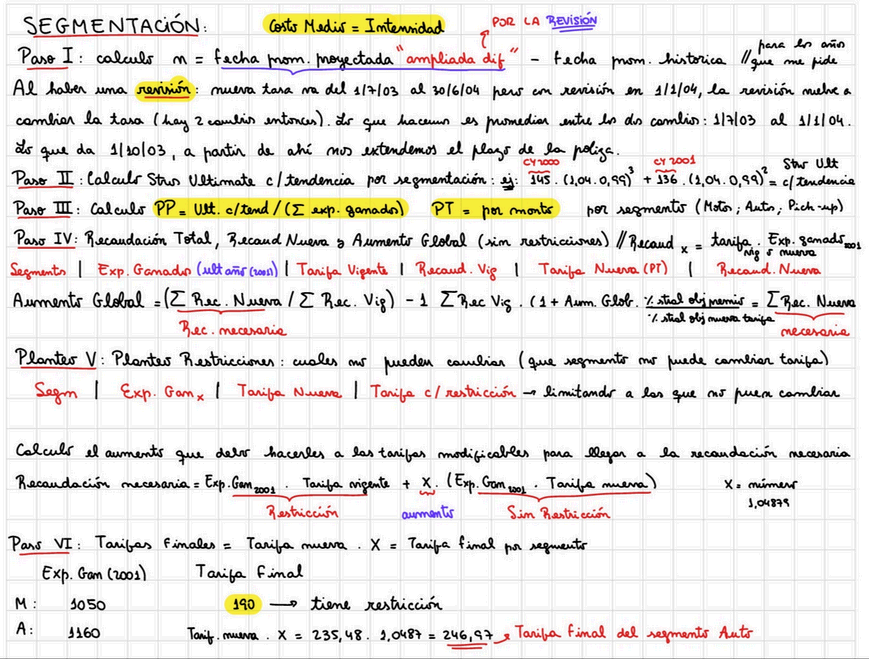 SEGMENTACIÓN: Costo Medio = Intensidad POR LA REVISIÓN
Paso I: calculo n = fecha prom. proyectada "ampliada dif" - fecha prom. historica // para los años que me pide
Al haber una revisión: nueva tasa va del 1/7/03 al 30/6/04 pero con revisión en 1/1/04, la revisión vuelve a
cambiar la tasa (hay 2 cambios entonces). Lo que hacemos es promediar entre los dos cambios: 1/7/03 al 1/1/04.
Lo que da 1/10/03, a partir de ahí nos extendemos el plazo de la poliza.
CY2000 CY2001
Paso II: Calculo Stros Ultimate c/tendencia por segmentación: ej: 145 . (1,04.0,99)³ + 136 . (1,04.0,99)² = Stros Ult c/tendencia
Paso III: Calculo PP = Ult. c/tend / (Σ exp. ganados) PT = por monto por segmento (Moto; Auto; Pick-up)
Paso IV: Recaudación Total, Recaud Nueva y Aumento Global (sin restricciones) // Recaud x = tarifa vig o nueva . Exp. ganado 2001
Segmento | Exp. Ganado (ult año (2001)) | Tarifa Vigente | Recaud. Vig | Tarifa Nueva (PT) | Recaud. Nueva
Aumento Global = (Σ Rec. Nueva / Σ Rec. Vig) - 1 Σ Rec Vig . (1 + Aum. Glob. % stial obj premio = Σ Rec. Nueva
% stial obj nueva tarifa
Rec. necesaria necesaria
Planteo V: Planteo Restricciones: cuales no pueden cambiar (que segmento no puede cambiar tarifa)
Segm | Exp. Gan x | Tarifa Nueva | Tarifa c/ restricción → limitando a los que no puen cambiar
Calculo el aumento que debo hacerles a las tarifas modificables para llegar a la recaudación necesaria
Recaudación necesaria = Exp.Gan 2001 . Tarifa vigente + X . (Exp.Gan 2001 . Tarifa nueva) X = número
1,04879
Restricción aumento Sin Restricción
Paso VI: Tarifas Finales = Tarifa nueva . X = Tarifa final por segmento
Exp. Gan (2001) Tarifa Final
M: 1050 190 → tiene restricción
A: 1160 Tarif. nueva . X = 235,48 . 1,0487 = 246,97 → Tarifa Final del segmento Auto